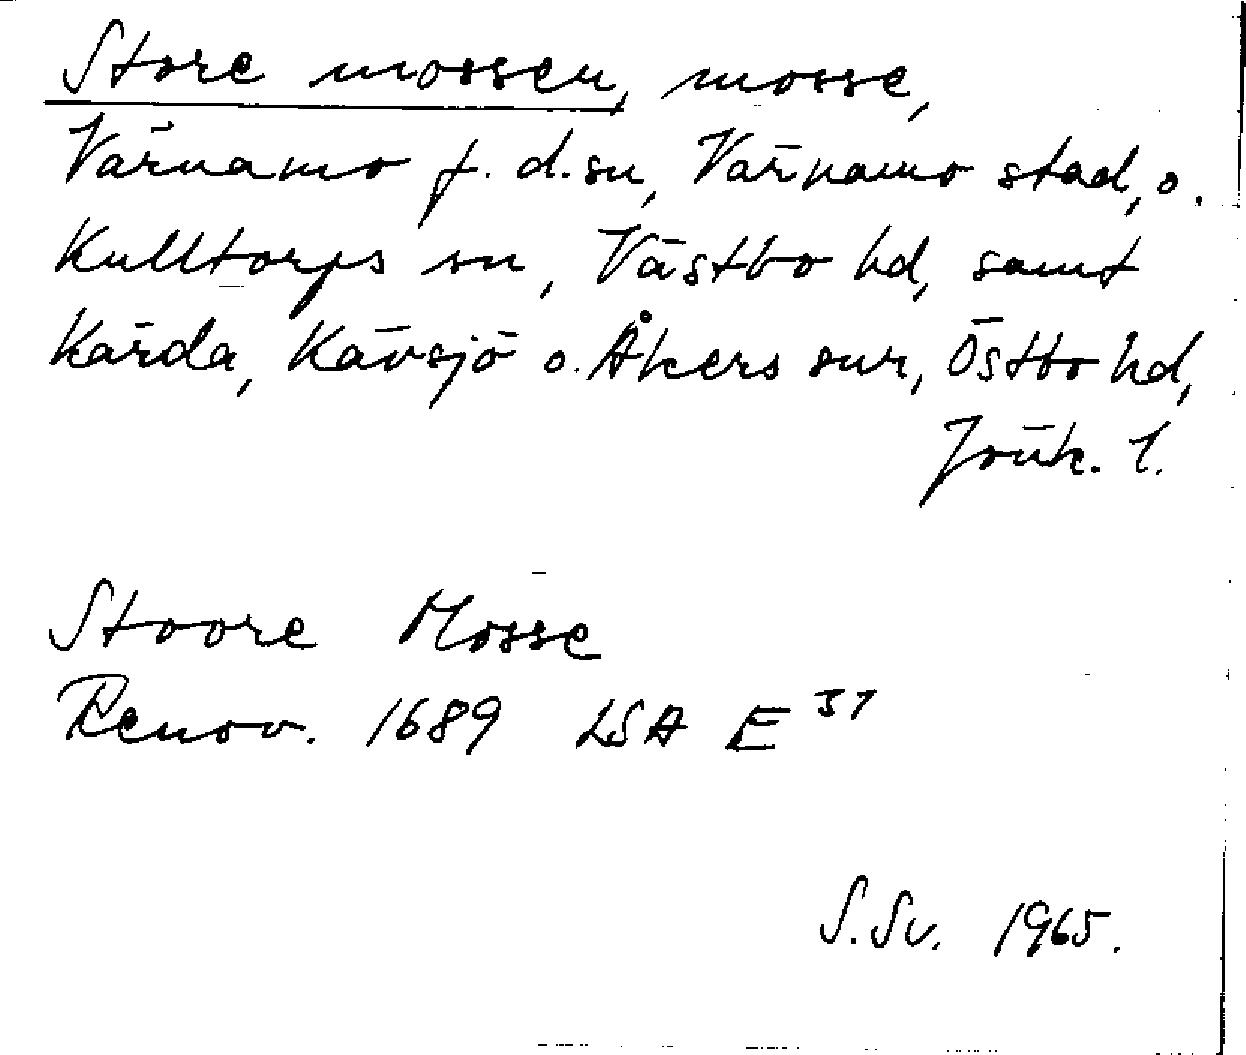 Store mossen, mosse,
Värnamo f. d. sn, Värnamo stad, o.
Kulltorps sn, Västbo hd, samt
Kärda, Kävsjö o. Åkers snr, Östbo hd,
Jönk. l.
Stoore Mosse
Renov. 1689 LSA E 37
S. Sv. 1965.